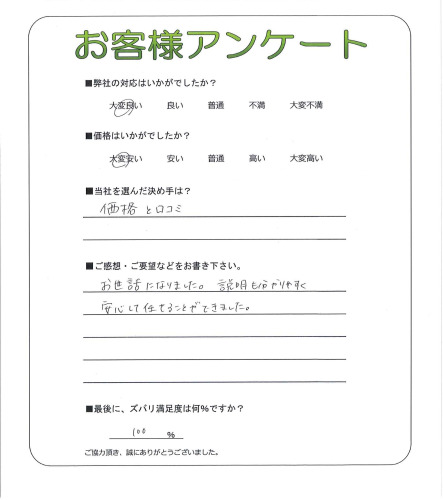 お客様アンケート
■弊社の対応はいかがでしたか？
大変良い 良い 普通 不満 大変不満
■価格はいかがでしたか？
大変安い 安い 普通 高い 大変高い
■当社を選んだ決め手は？
価格と口コミ
■ご感想・ご要望などをお書き下さい。
お世話になりました。説明も分かりやすく
安心して任せることができました。
■最後に、ズバリ満足度は何％ですか？
100 ％
ご協力頂き、誠にありがとうございました。